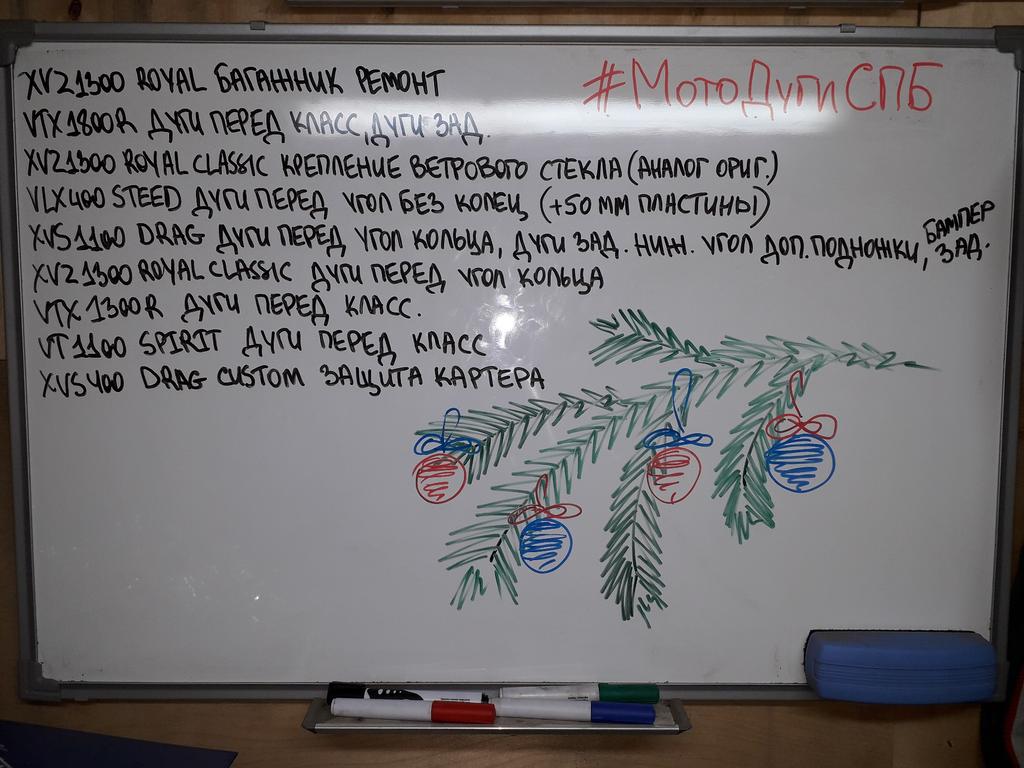 #МотоДугиСПБ
XVZ1300 ROYAL БАГАЖНИК РЕМОНТ
VTX1800R ДУГИ ПЕРЕД КЛАСС, ДУГИ ЗАД.
XVZ1300 ROYAL CLASSIC КРЕПЛЕНИЕ ВЕТРОВОГО СТЕКЛА (АНАЛОГ ОРИГ.)
VLX400 STEED ДУГИ ПЕРЕД УГОЛ БЕЗ КОЛЕЦ (+50 ММ ПЛАСТИНЫ)
XVS1100 DRAG ДУГИ ПЕРЕД УГОЛ КОЛЬЦА, ДУГИ ЗАД. НИЖ. УГОЛ ДОП. ПОДНОЖКИ, БАМПЕР ЗАД.
XVZ1300 ROYAL CLASSIC ДУГИ ПЕРЕД УГОЛ КОЛЬЦА
VTX 1300R ДУГИ ПЕРЕД КЛАСС.
VT1100 SPIRIT ДУГИ ПЕРЕД КЛАСС
XVS400 DRAG CUSTOM ЗАЩИТА КАРТЕРА